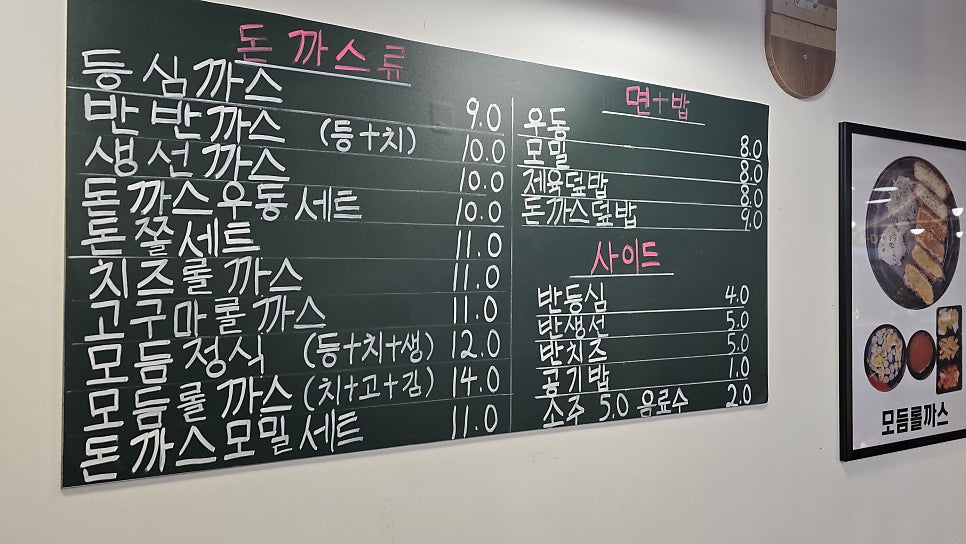 돈까스류
등심까스 9.0
반반까스 (등+치) 10.0
생선까스 10.0
돈까스우동세트 10.0
돈쫄세트 11.0
치즈롤까스 11.0
고구마롤까스 11.0
모듬정식 (등+치+생) 12.0
모듬롤까스 (치+고+김) 14.0
돈까스모밀세트 11.0
면+밥
우동 8.0
모밀 8.0
제육덮밥 8.0
돈까스덮밥 9.0
사이드
반등심 4.0
반생선 5.0
반치즈 5.0
공기밥 1.0
소주 5.0 음료수 2.0
모듬롤까스